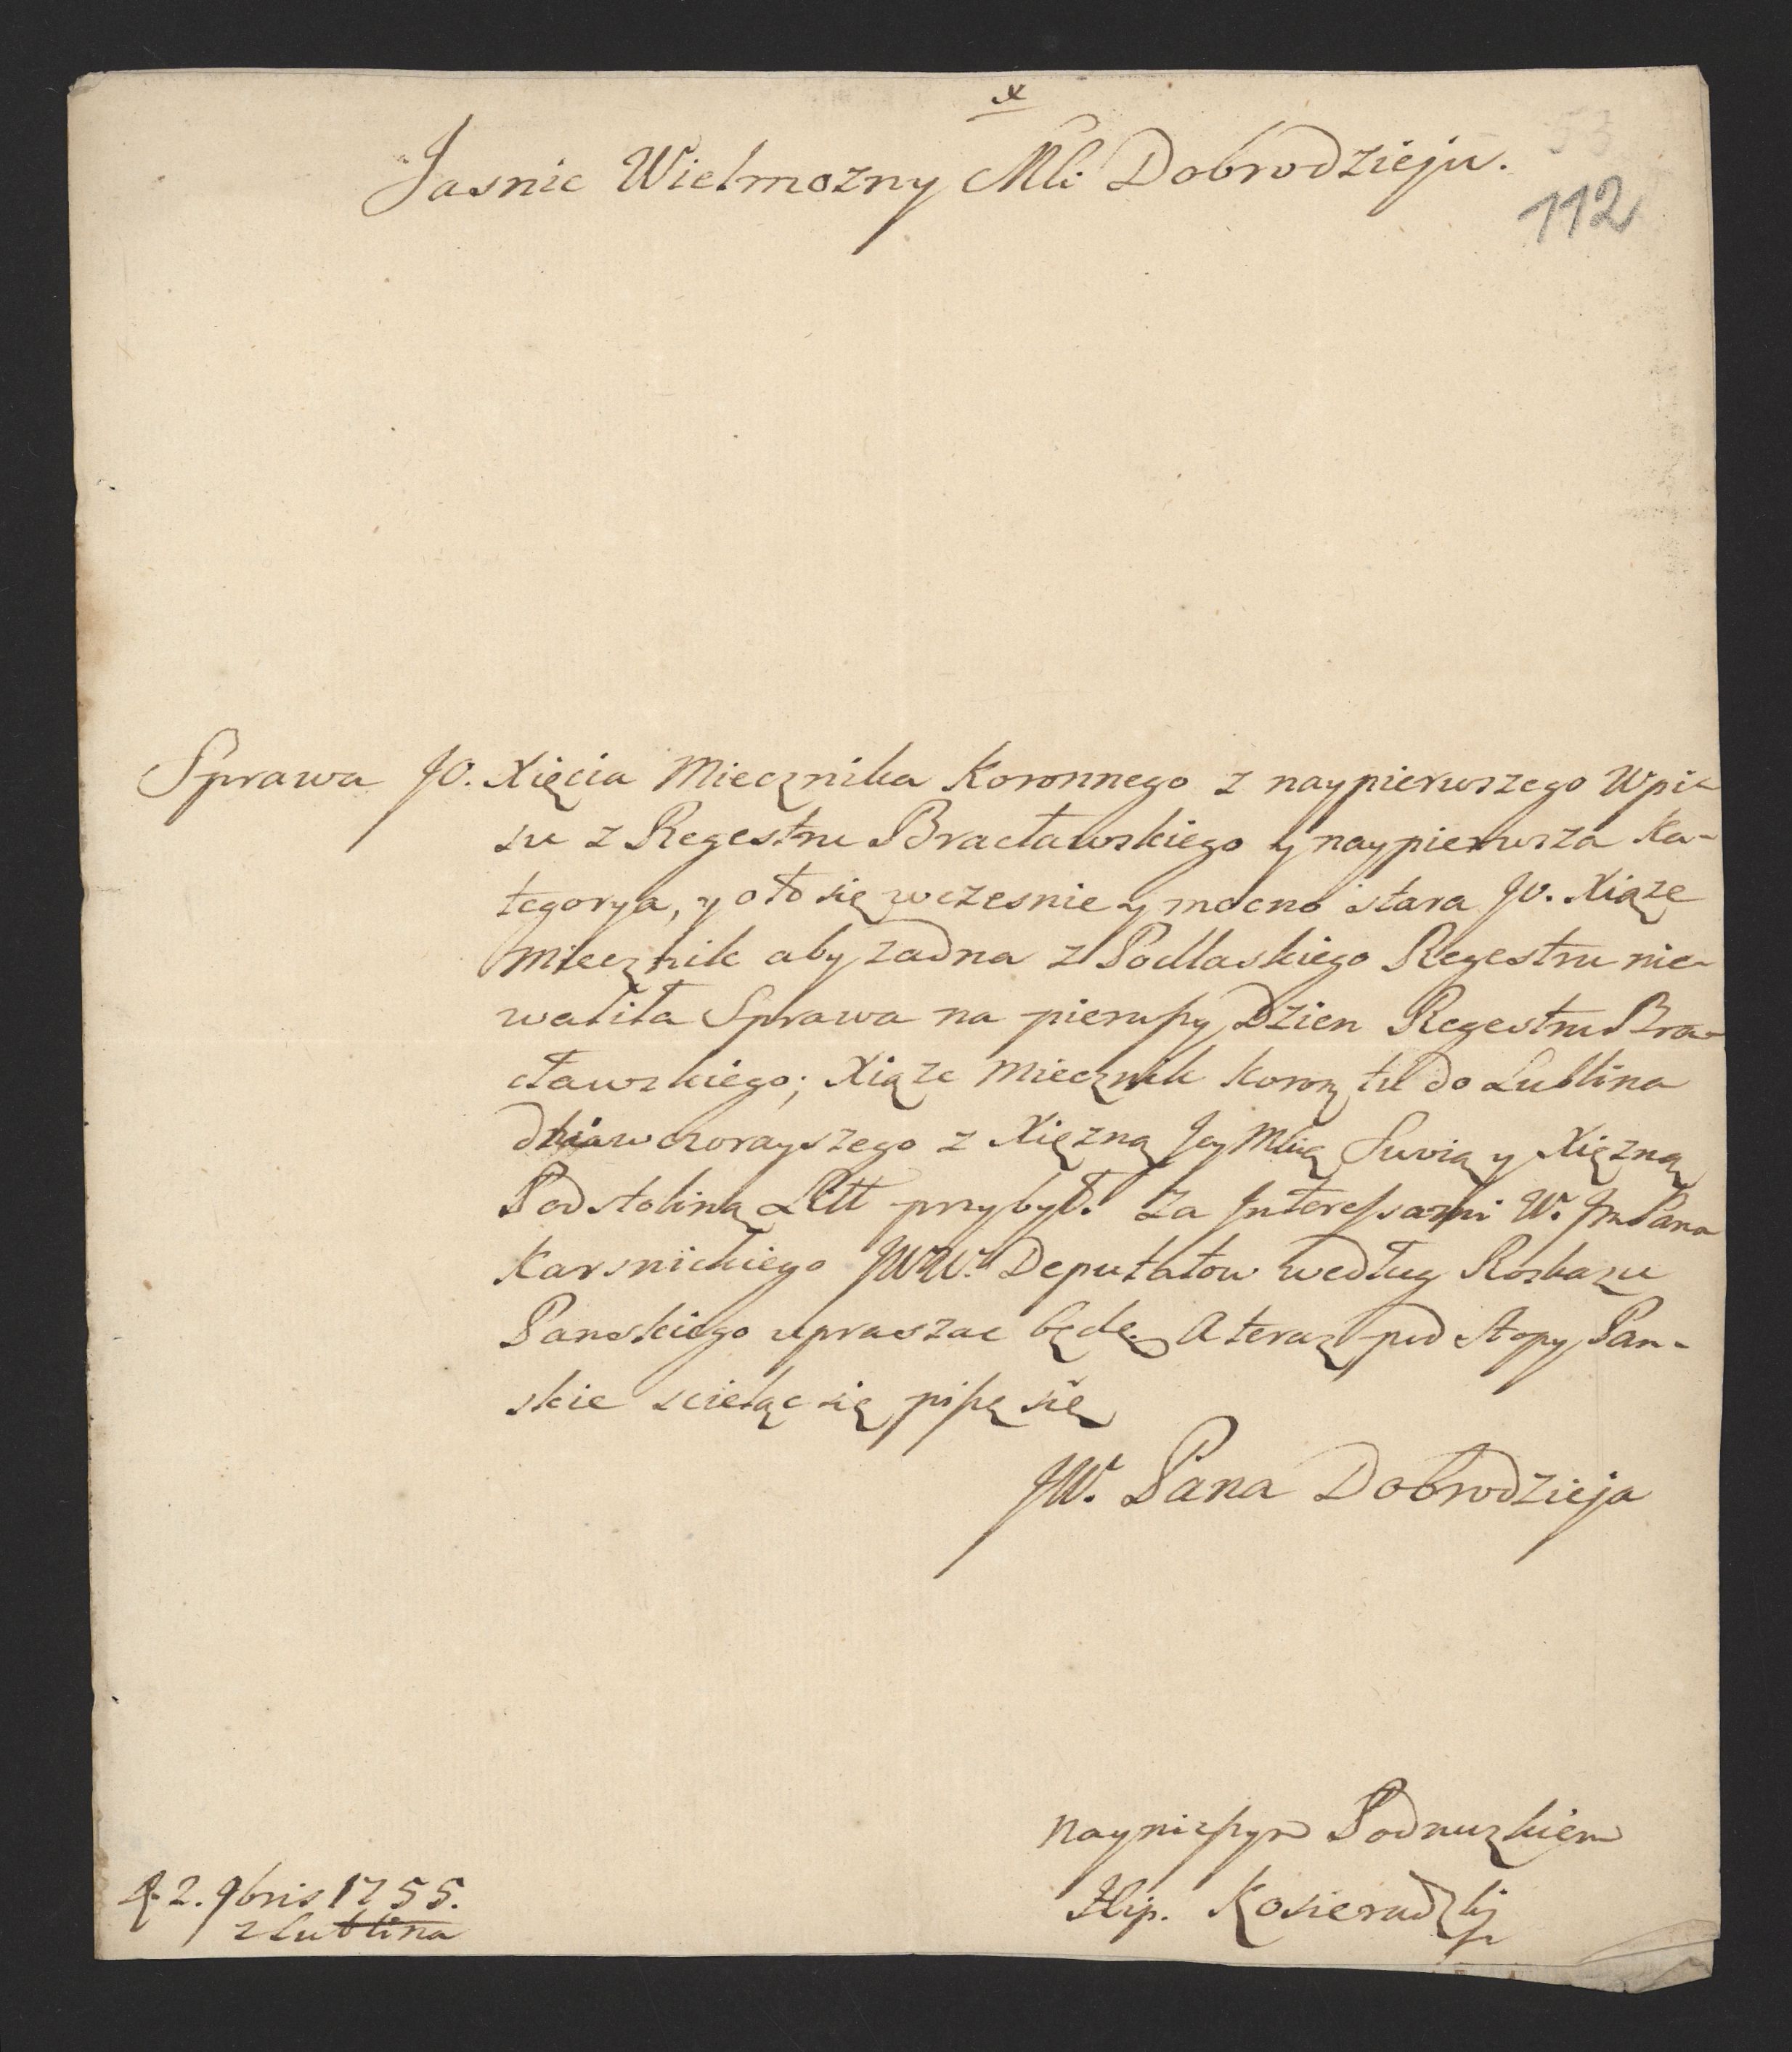 x
53
Jasnie Wielmozny Mli Dobrodzieju.
112
Sprawa JO. Xięcia Miecznika Koronnego z naypierwszego Wpi-
su z Regestru Bracławskiego y naypierwsza Ka-
tegorya, y oto się wczesnie y mocno stara JO. Xiąze
Miecznik aby zadna z Podlaskiego Regestru nie-
waliła Sprawa na pierwszy Dzien Regestru Bra-
cławskiego; Xiąze Miecznik koron tu do Lublina
dnia wczorayszego z Xięzną Jey Mcią Swoią y Xięzną
Podstoliną Litt przybył. Za Interessami W. Jm Pana
Karsnickiego JWW. Deputatow według Roskazu
Panskiego upraszac będę. A teraz pod stopy Pan-
skie scieląc się piszę się
JW. Pana Dobrodzieja
naynizszym Podnuzkiem
Hip. Kosieradzki
D. 2. 9bris 1755.
z Lublina